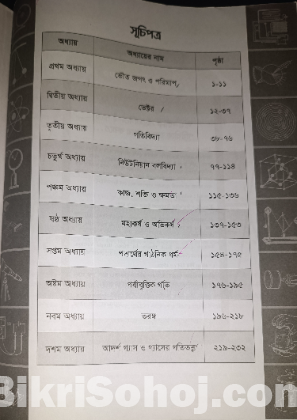 সূচিপত্র
অধ্যায় অধ্যায়ের নাম পৃষ্ঠা
প্রথম অধ্যায় ভৌত জগৎ ও পরিমাপ ১-১১
দ্বিতীয় অধ্যায় ভেক্টর ১২-৩৭
তৃতীয় অধ্যায় গতিবিদ্যা ৩৮-৭৬
চতুর্থ অধ্যায় নিউটনিয়ান বলবিদ্যা ৭৭-১১৪
পঞ্চম অধ্যায় কাজ, শক্তি ও ক্ষমতা ১১৫-১৩৬
ষষ্ঠ অধ্যায় মহাকর্ষ ও অভিকর্ষ ১৩৭-১৫৩
সপ্তম অধ্যায় পদার্থের গাঠনিক ধর্ম ১৫৪-১৭৫
অষ্টম অধ্যায় পর্যাবৃত্তিক গতি ১৭৬-১৯৫
নবম অধ্যায় তরঙ্গ ১৯৬-২১৮
দশম অধ্যায় আদর্শ গ্যাস ও গ্যাসের গতিতত্ত্ব ২১৯-২৩২
BikriSohoj.com